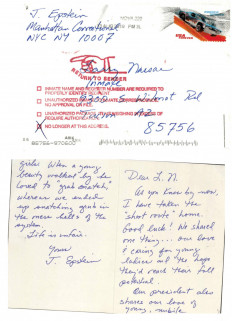 J. Epstein
Manhattan Correctional
NYC NY 10007
RETURN TO SENDER
Larry Nassar
Inmate
9300 S. Wilmot Rd
INMATE NAME AND REGISTER NUMBER ARE REQUIRED TO
PROPERLY IDENTIFY RECIPIENT
AZ
85756
NO LONGER AT THIS ADDRESS
girls. When a young
beauty walked by he
loved to "grab snatch,"
whereas we ended
up snatching grub in
the mess halls of the
system.
Life is unfair.
Yours
J. Epstein
Dear L.N.
As you know by now,
I have taken the
"short route" home.
Good luck! We shared
one thing... our love
& caring for young
ladies and the hope
they'd reach their full
potential.
Our president also
shares our love of
young, nubile